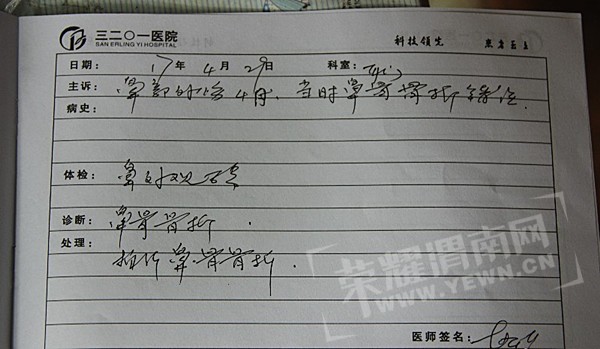 三二〇一医院
SAN ERLING YI HOSPITAL
科技领先
日期： 17年4月29日 科室：
主诉： 鼻部外伤4月，当时鼻骨骨折错位．
病史：
体检： 鼻外观
诊断： 鼻骨骨折．
处理：
鼻骨骨折．
荣耀渭南网
WWW.YEWN.CN
医师签名：